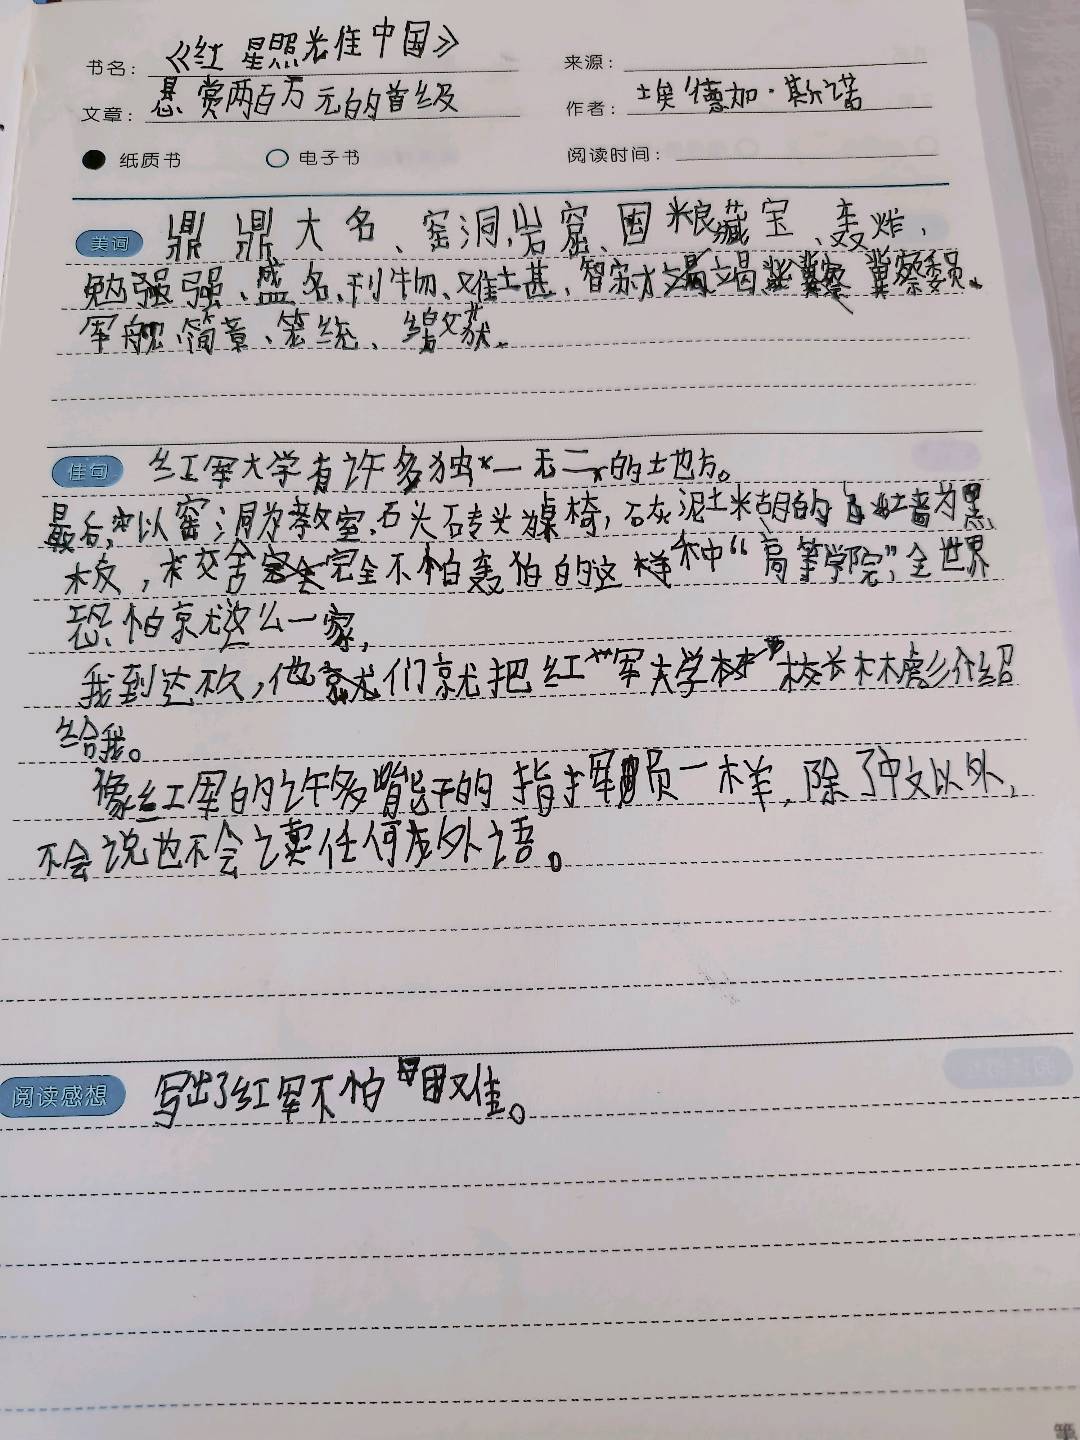 书名：《红星照耀中国》 来源：
文章：悬赏两百万元的首级 作者：埃德加·斯诺
纸质书 电子书 阅读时间：
美词 鼎鼎大名、窑洞、岩窟、囤粮藏宝、轰炸，
勉强强、盛名、刊物、难土甚、智穷才竭 冀察委员、
军舰、简章、笼统、缴获、
佳句 红军大学有许多独一无二的土地方。
最后，以窑洞为教室，石头砖头为桌椅，石灰泥土糊的墙为黑
板，校舍完全不怕轰炸的这种“高等学院”，全世界
恐怕就这么一家，
我到达不久，他们就把红军大学校长林彪介绍
给我。
像红军的许多能干的指挥员一样，除了中文以外，
不会说也不会读任何外语。
阅读感想 写出了红军不怕困难。